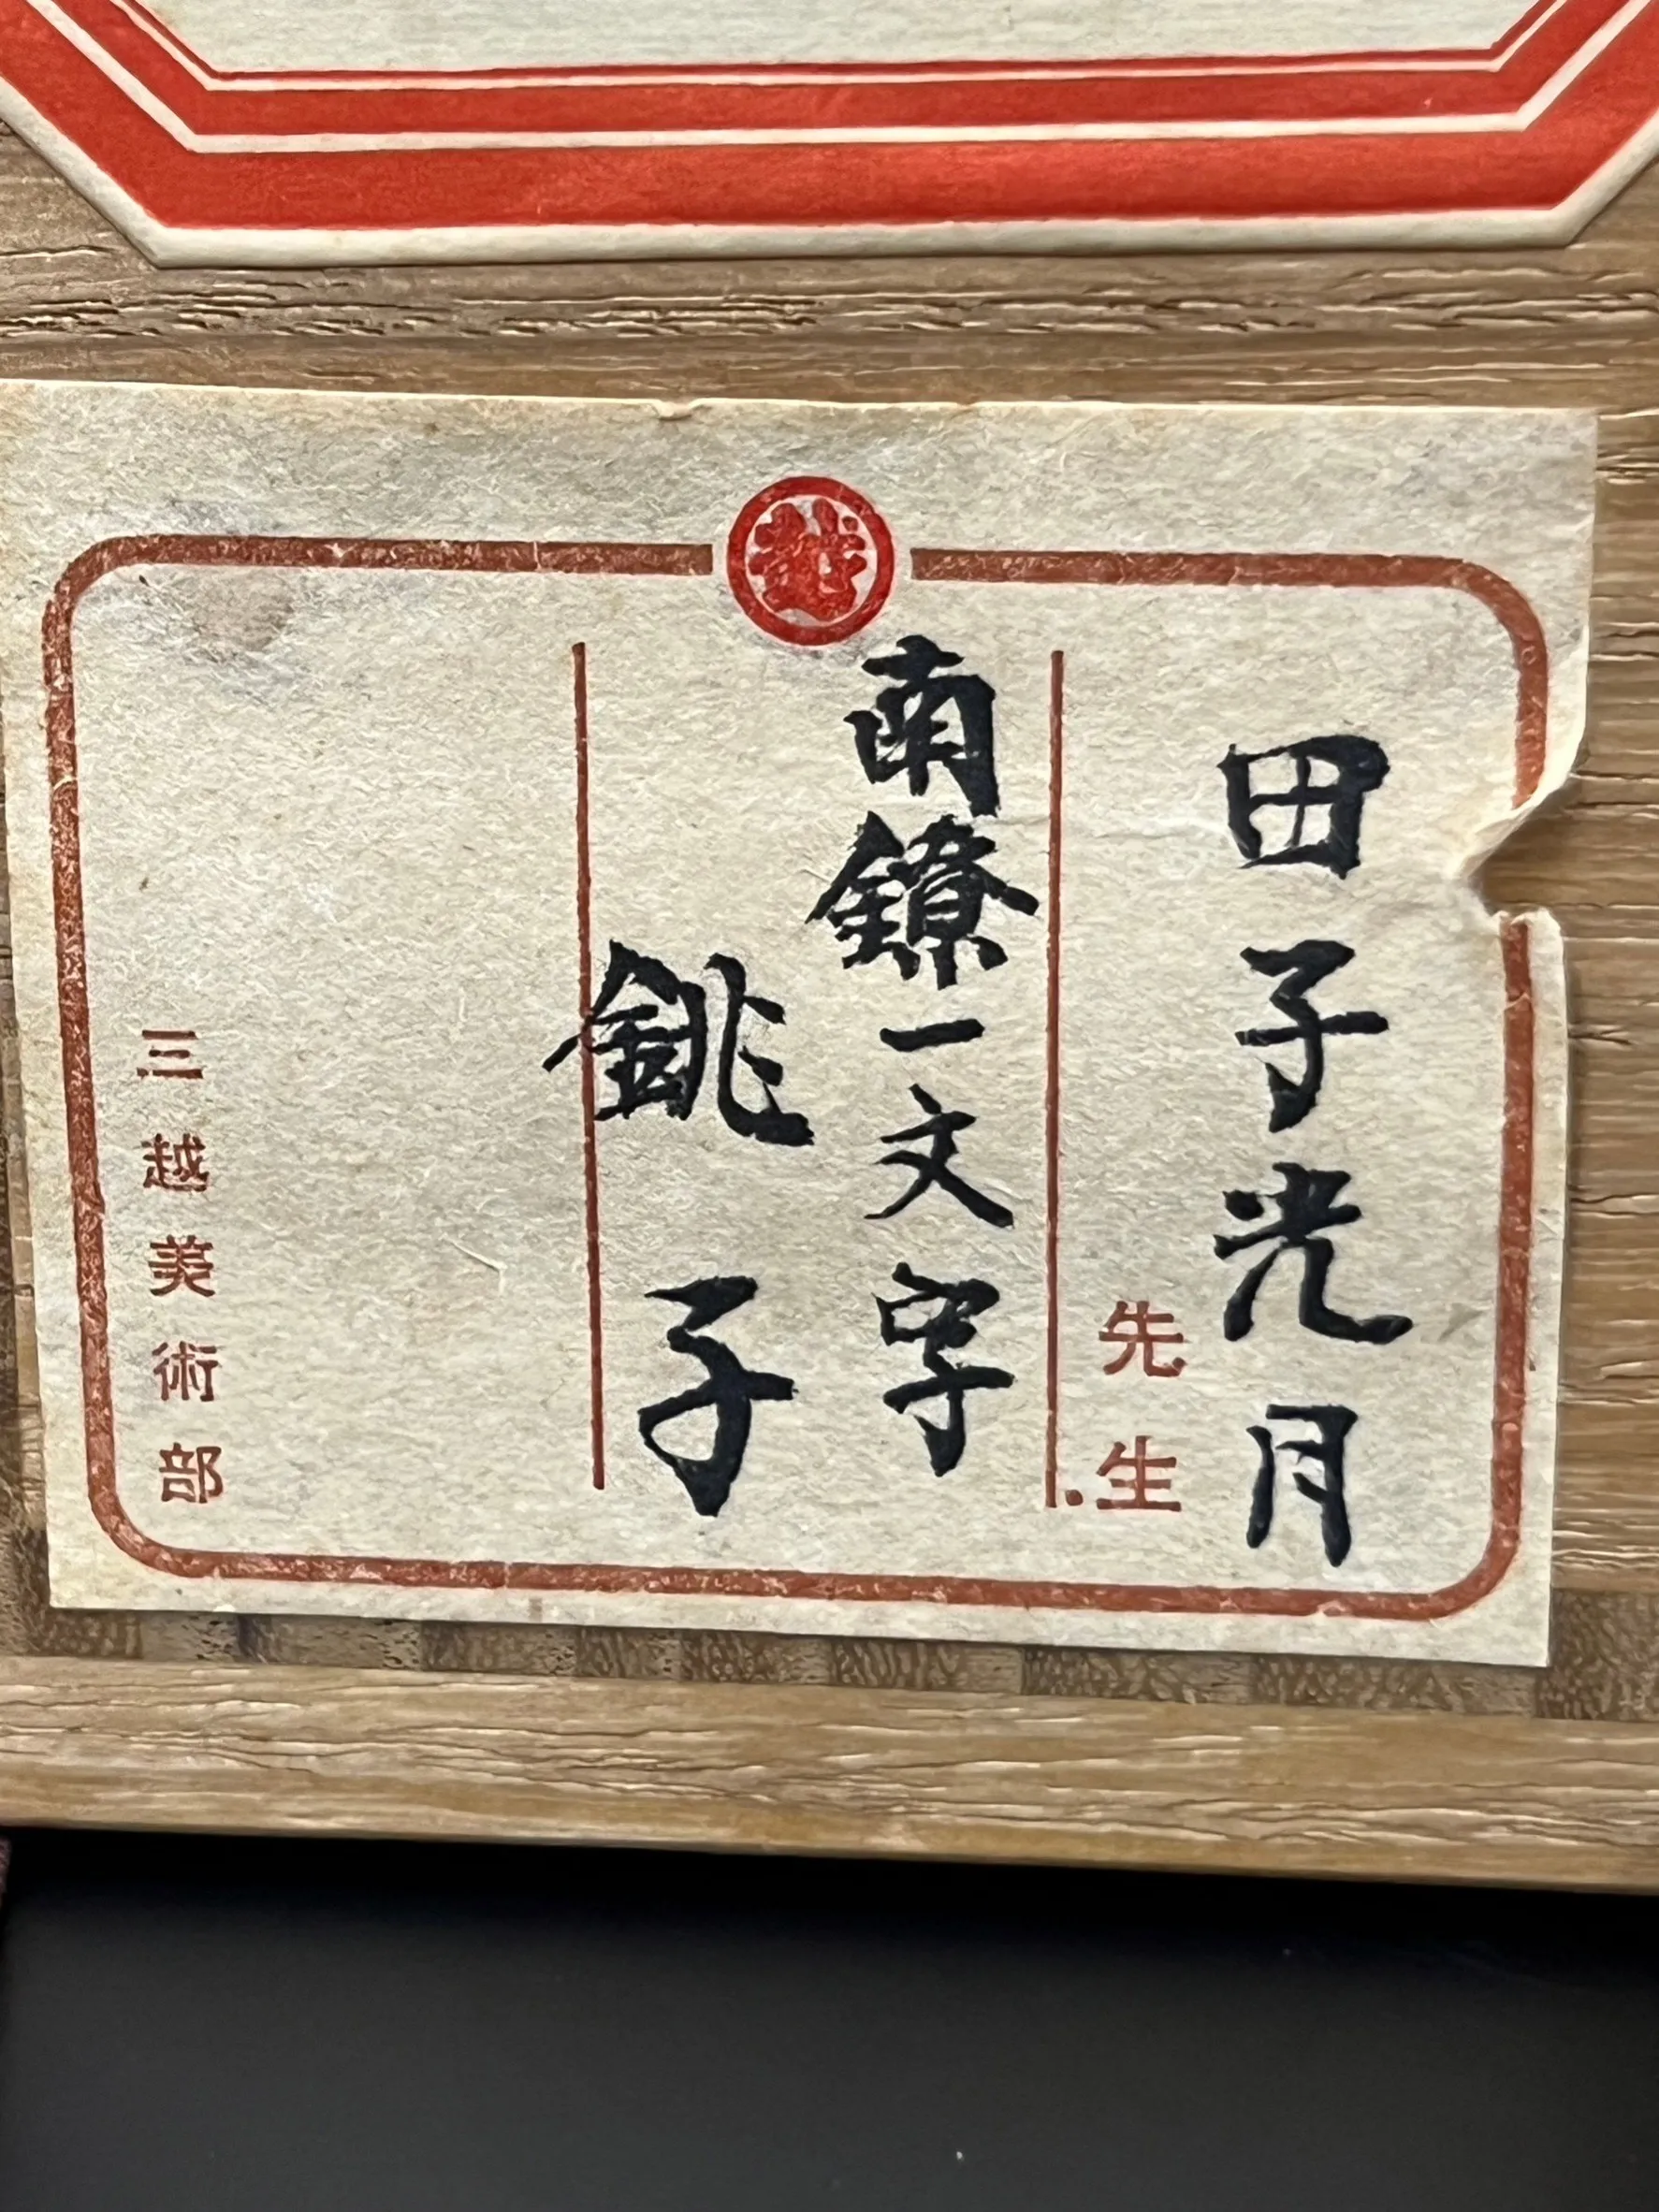 越
田子光月
先生
南鐐一文字
銚子
三越美術部